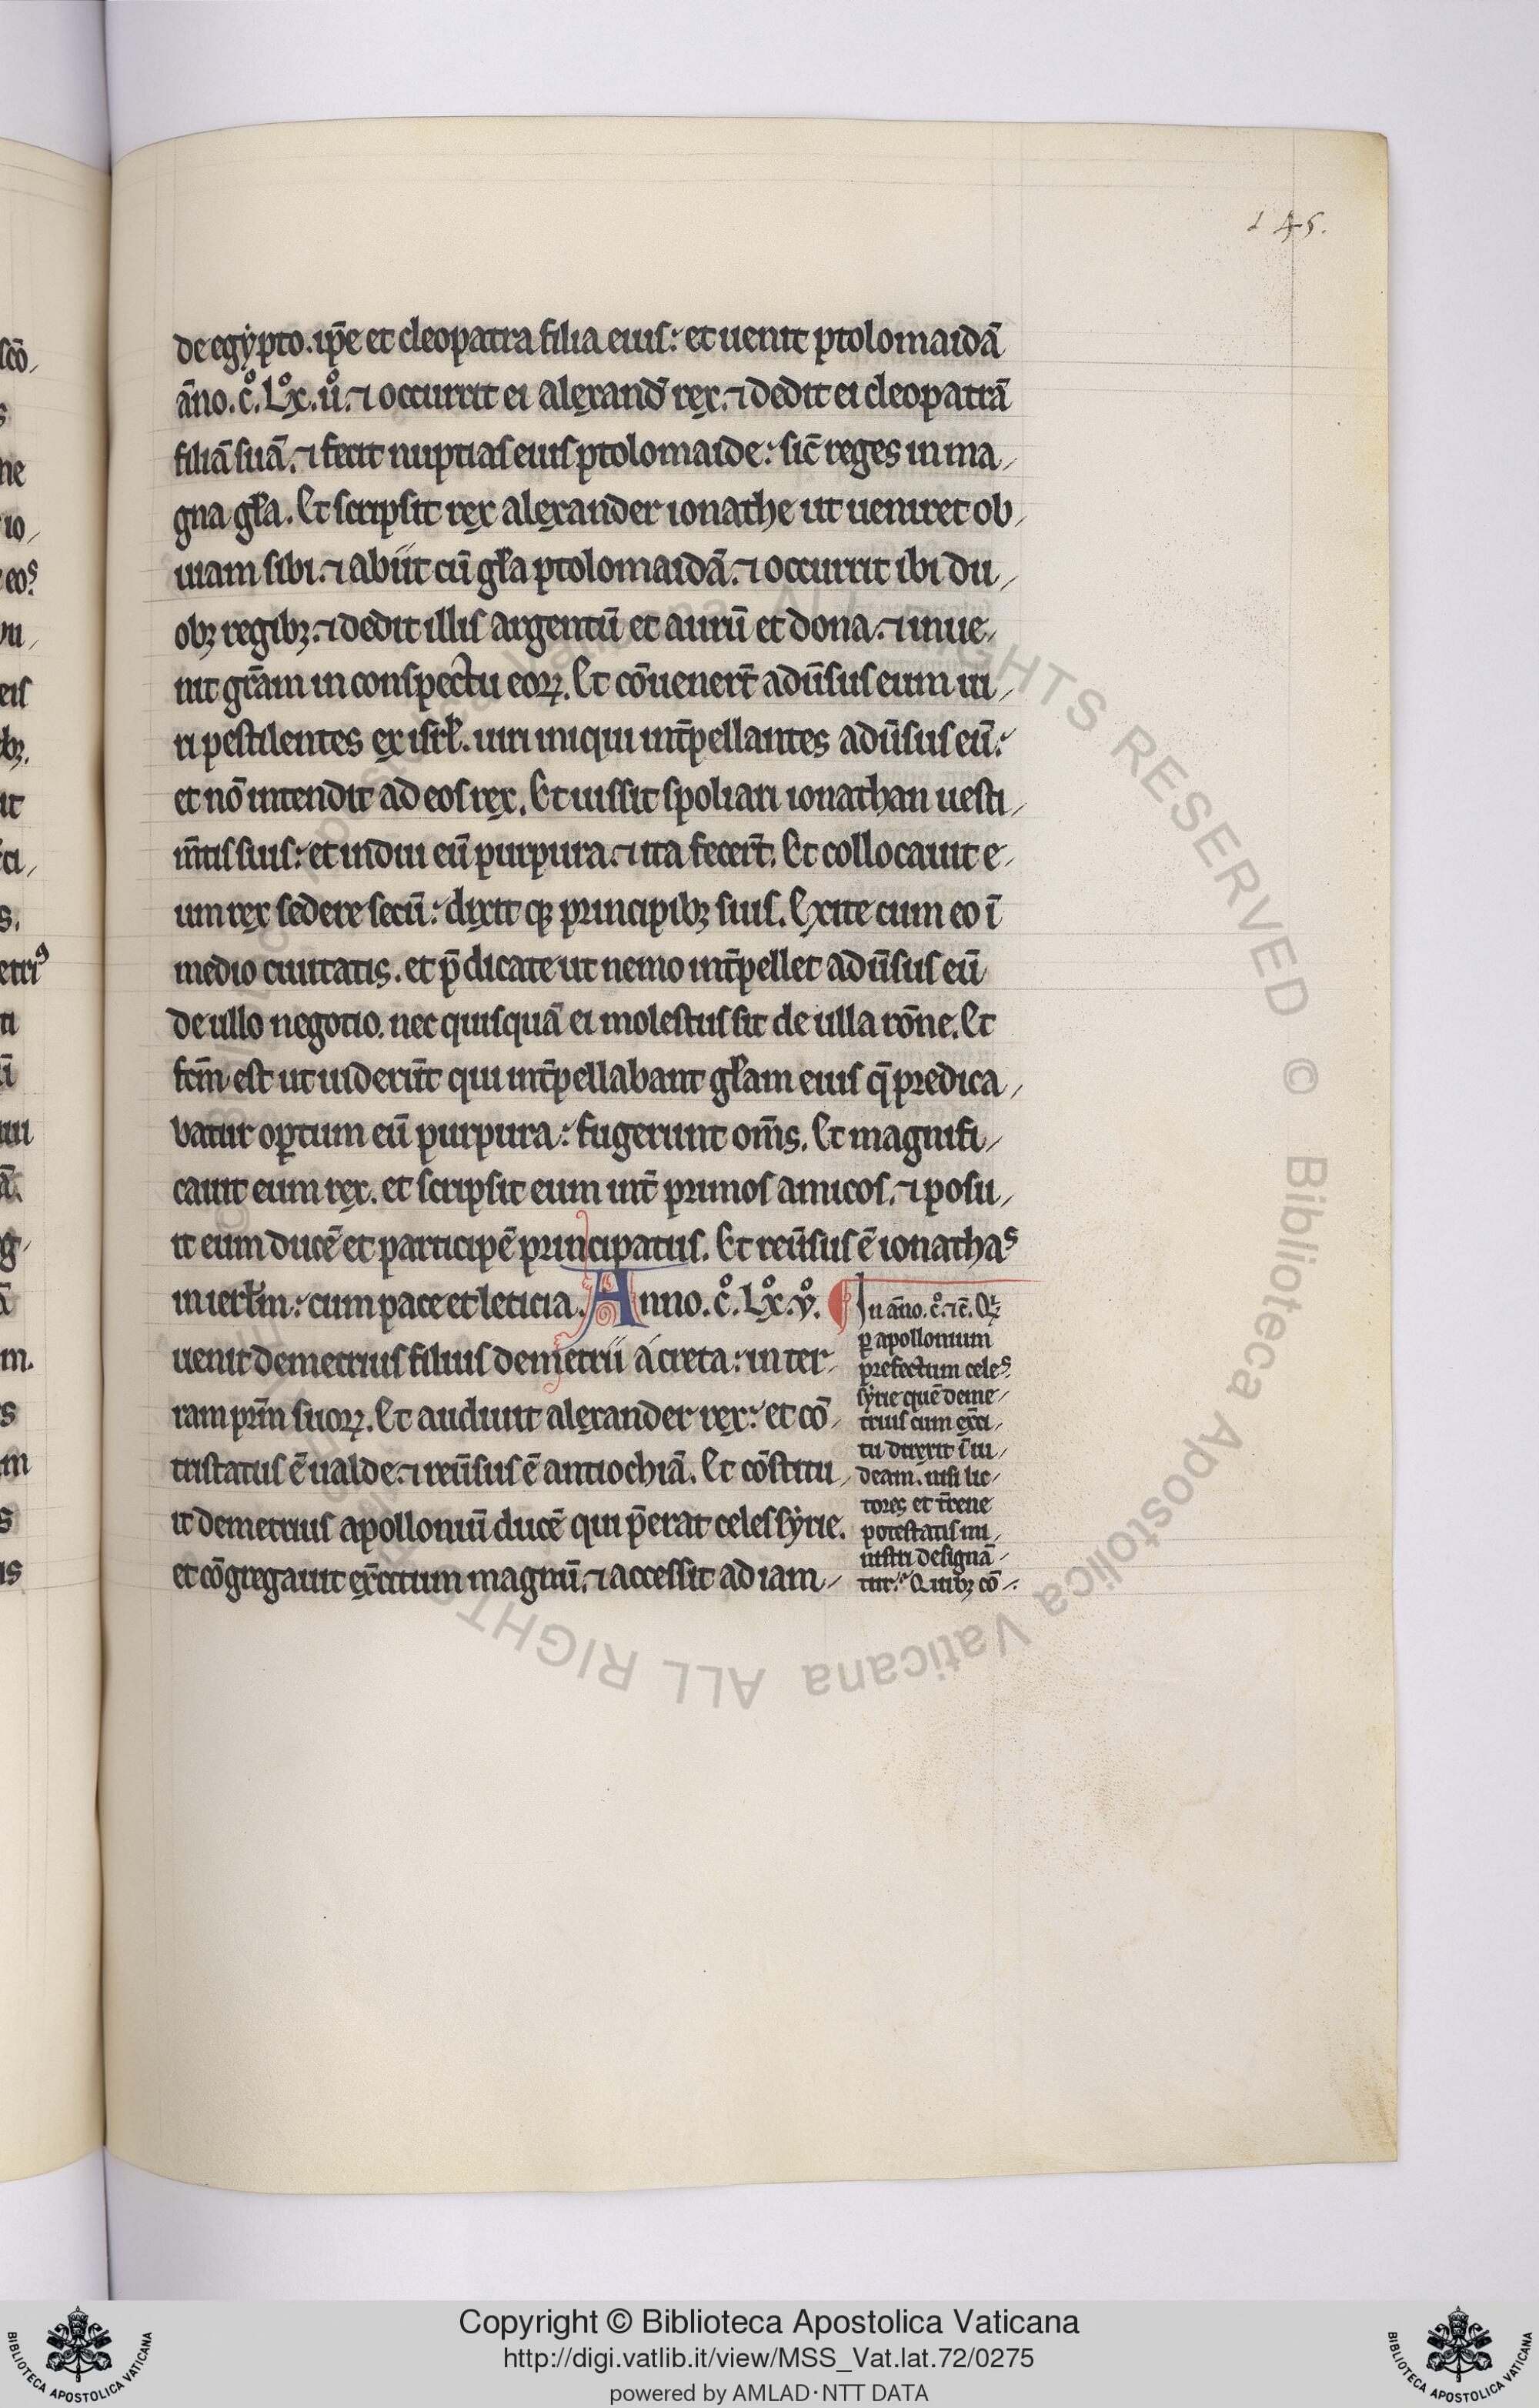 145.
de egẏpto. ip̄e et cleopatra filia eius: et uenit ptolomaidā
āno. cͦ. Lͦx. uͦ. ⁊ occurrit ei alexand̄ rex. ⁊ dedit ei cleopatrā
filiā suā. ⁊ fecit nuptias eius ptolomaide: sic̄ reges in ma
gna gl̄a. Et scripsit rex alexander ionathe ut ueniret ob
uiam sibi. ⁊ abiit cū gl̄a ptolomaidā. ⁊ occurrit ibi du
obꝫ regibꝫ. ⁊ dedit illis argentū et aurū et dona. ⁊ inue
nit gr̄am in conspectu eoꝝ. Et cōuenert̄ adūsus eum ui
ri pestilentes ex isrl̄. uiri iniqui int̄pellantes adūsus eū:
et nō intendit ad eos rex. Et iussit spoliari ionathan uesti
m̄tis suis: et indui eū purpura. ⁊ ita fecert̄. Et collocauit e
um rex sedere secū: dixit qꝫ principibꝫ suis. Exite cum eo ī
medio ciuitatis. et p̄dicate ut nemo int̄pellet adūsus eū
de ullo negotio. nec quisquā ei molestus sit de ulla rōne. Et
fcm̄ est ut uiderūt qui int̄pellabant gl̄am eius q̄ predica
batur opertum eū purpura: fugerunt om̄s. Et magnifi
cauit eum rex. et scripsit eum int̄ primos amicos. ⁊ posu
it eum ducē et participē principatus. Et reūsus ē ionathas
in ierl̄m: cum pace et leticia. Anno. cͦ. Lͦx. vͦ.
uenit demetrius filius demetrii a creta: in ter
ram pr̄m suoꝝ. Et audiuit alexander rex: et cō
tristatus ē ualde. ⁊ reūsus ē antiochiā. Et cōstitu
it demetrius apolloniū ducē qui p̄erat celessẏrie.
et cōgregauit ex̄citum magnū. ⁊ accessit ad iam
In āno. cͦ. ⁊ c̄.
ꝑ apollonium
prefectum celes
sẏrie quē deme
trius cum ex̄ci
tu direxit ī iu
deam.
tores et
potestatis mi
nistri designā
tur. Quibꝫ cō
Copyright © Biblioteca Apostolica Vaticana
http://digi.vatlib.it/view/MSS_Vat.lat.72/0275
powered by AMLAD·NTT DATA
BIBLIOTECA APOSTOLICA VATICANA
BIBLIOTECA APOSTOLICA VATICANA
© Biblioteca Apostolica Vaticana ALL RIGHTS RESERVED